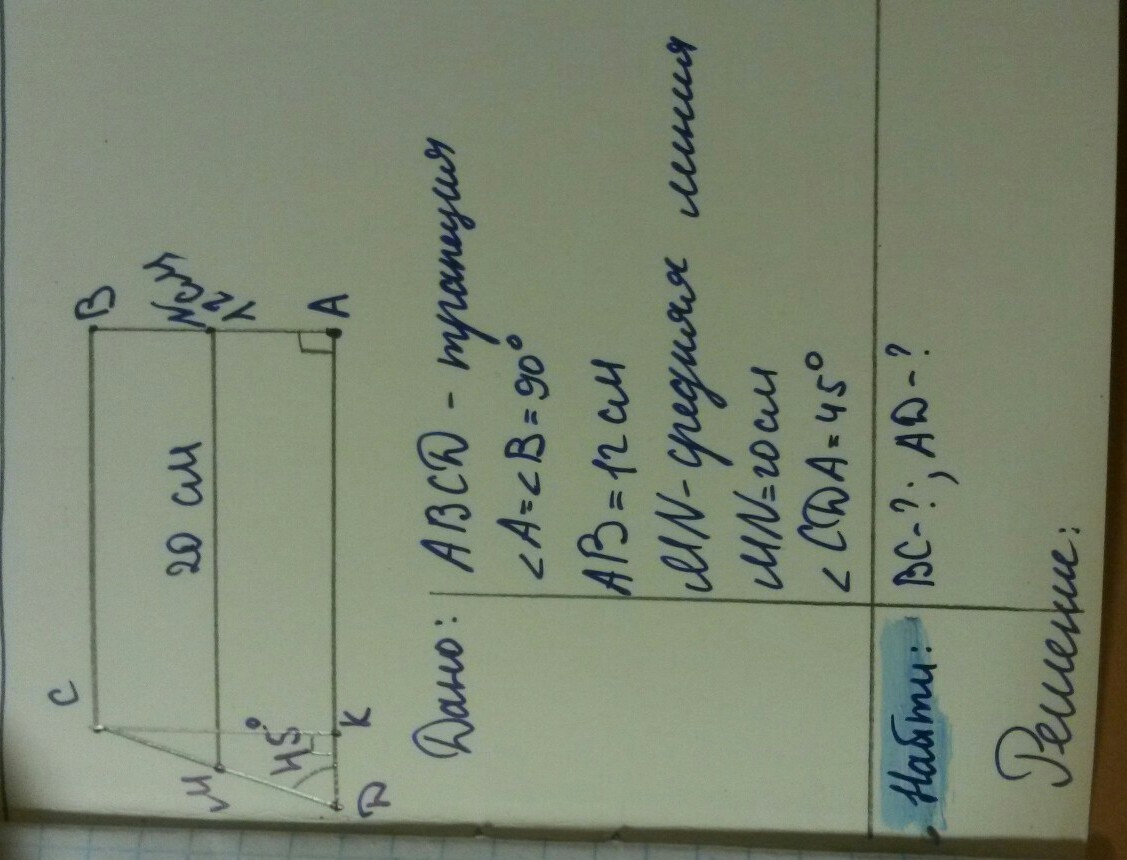 C
B
20 см
M
N
45°
D
K
A
Дано: ABCD - трапеция
<A=<B=90°
AB=12 см
MN-средняя линия
MN=20см
<CDA=45°
Найти: BC-?; AD-?
Решение: